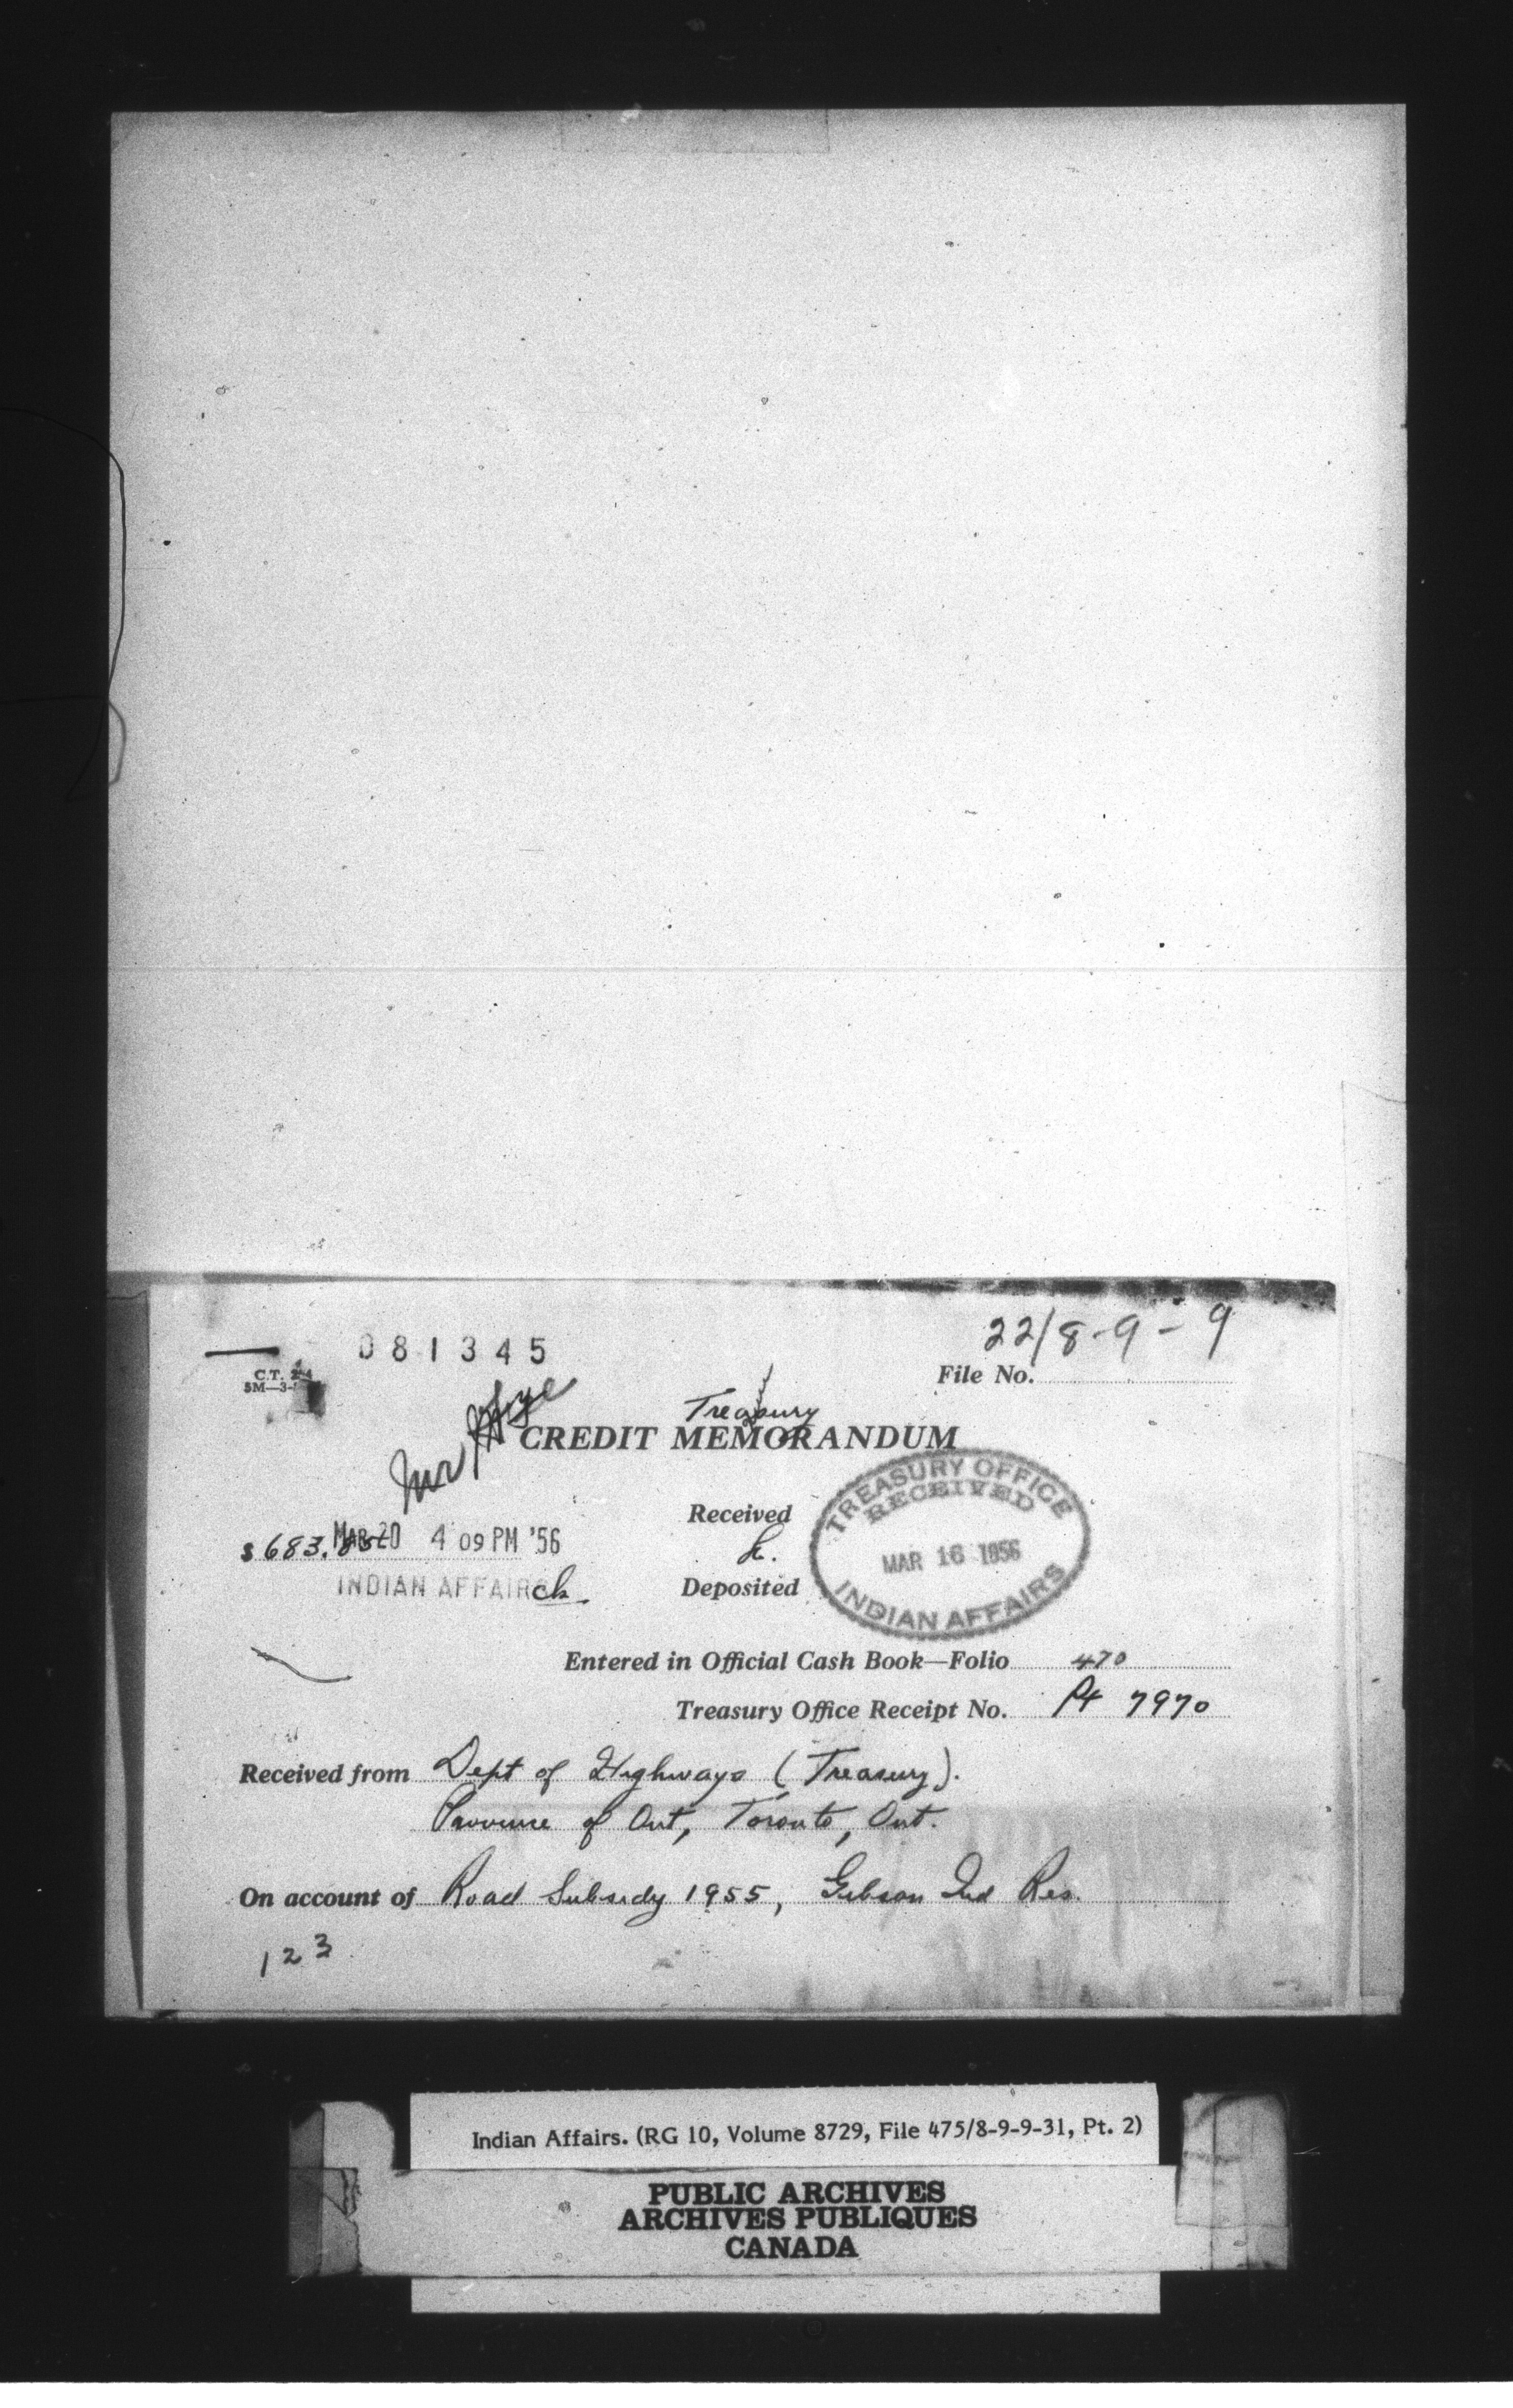 081345
22/8-9-9
File No.
C.T.
5M—3-
Treasury
CREDIT MEMORANDUM
Mr
TREASURY OFFICE
RECEIVED
MAR 16 1956
INDIAN AFFAIRS
Received
$683.85 MAR 20 4 09 PM '56
INDIAN AFFAIR
ck.
Deposited
Entered in Official Cash Book—Folio 470
Treasury Office Receipt No. 7970
Received from Dept of Highways (Treasury).
Province of Ont, Toronto, Ont.
On account of Road Subsidy 1955, Gibson Ind Res.
123
Indian Affairs. (RG 10, Volume 8729, File 475/8-9-9-31, Pt. 2)
PUBLIC ARCHIVES
ARCHIVES PUBLIQUES
CANADA